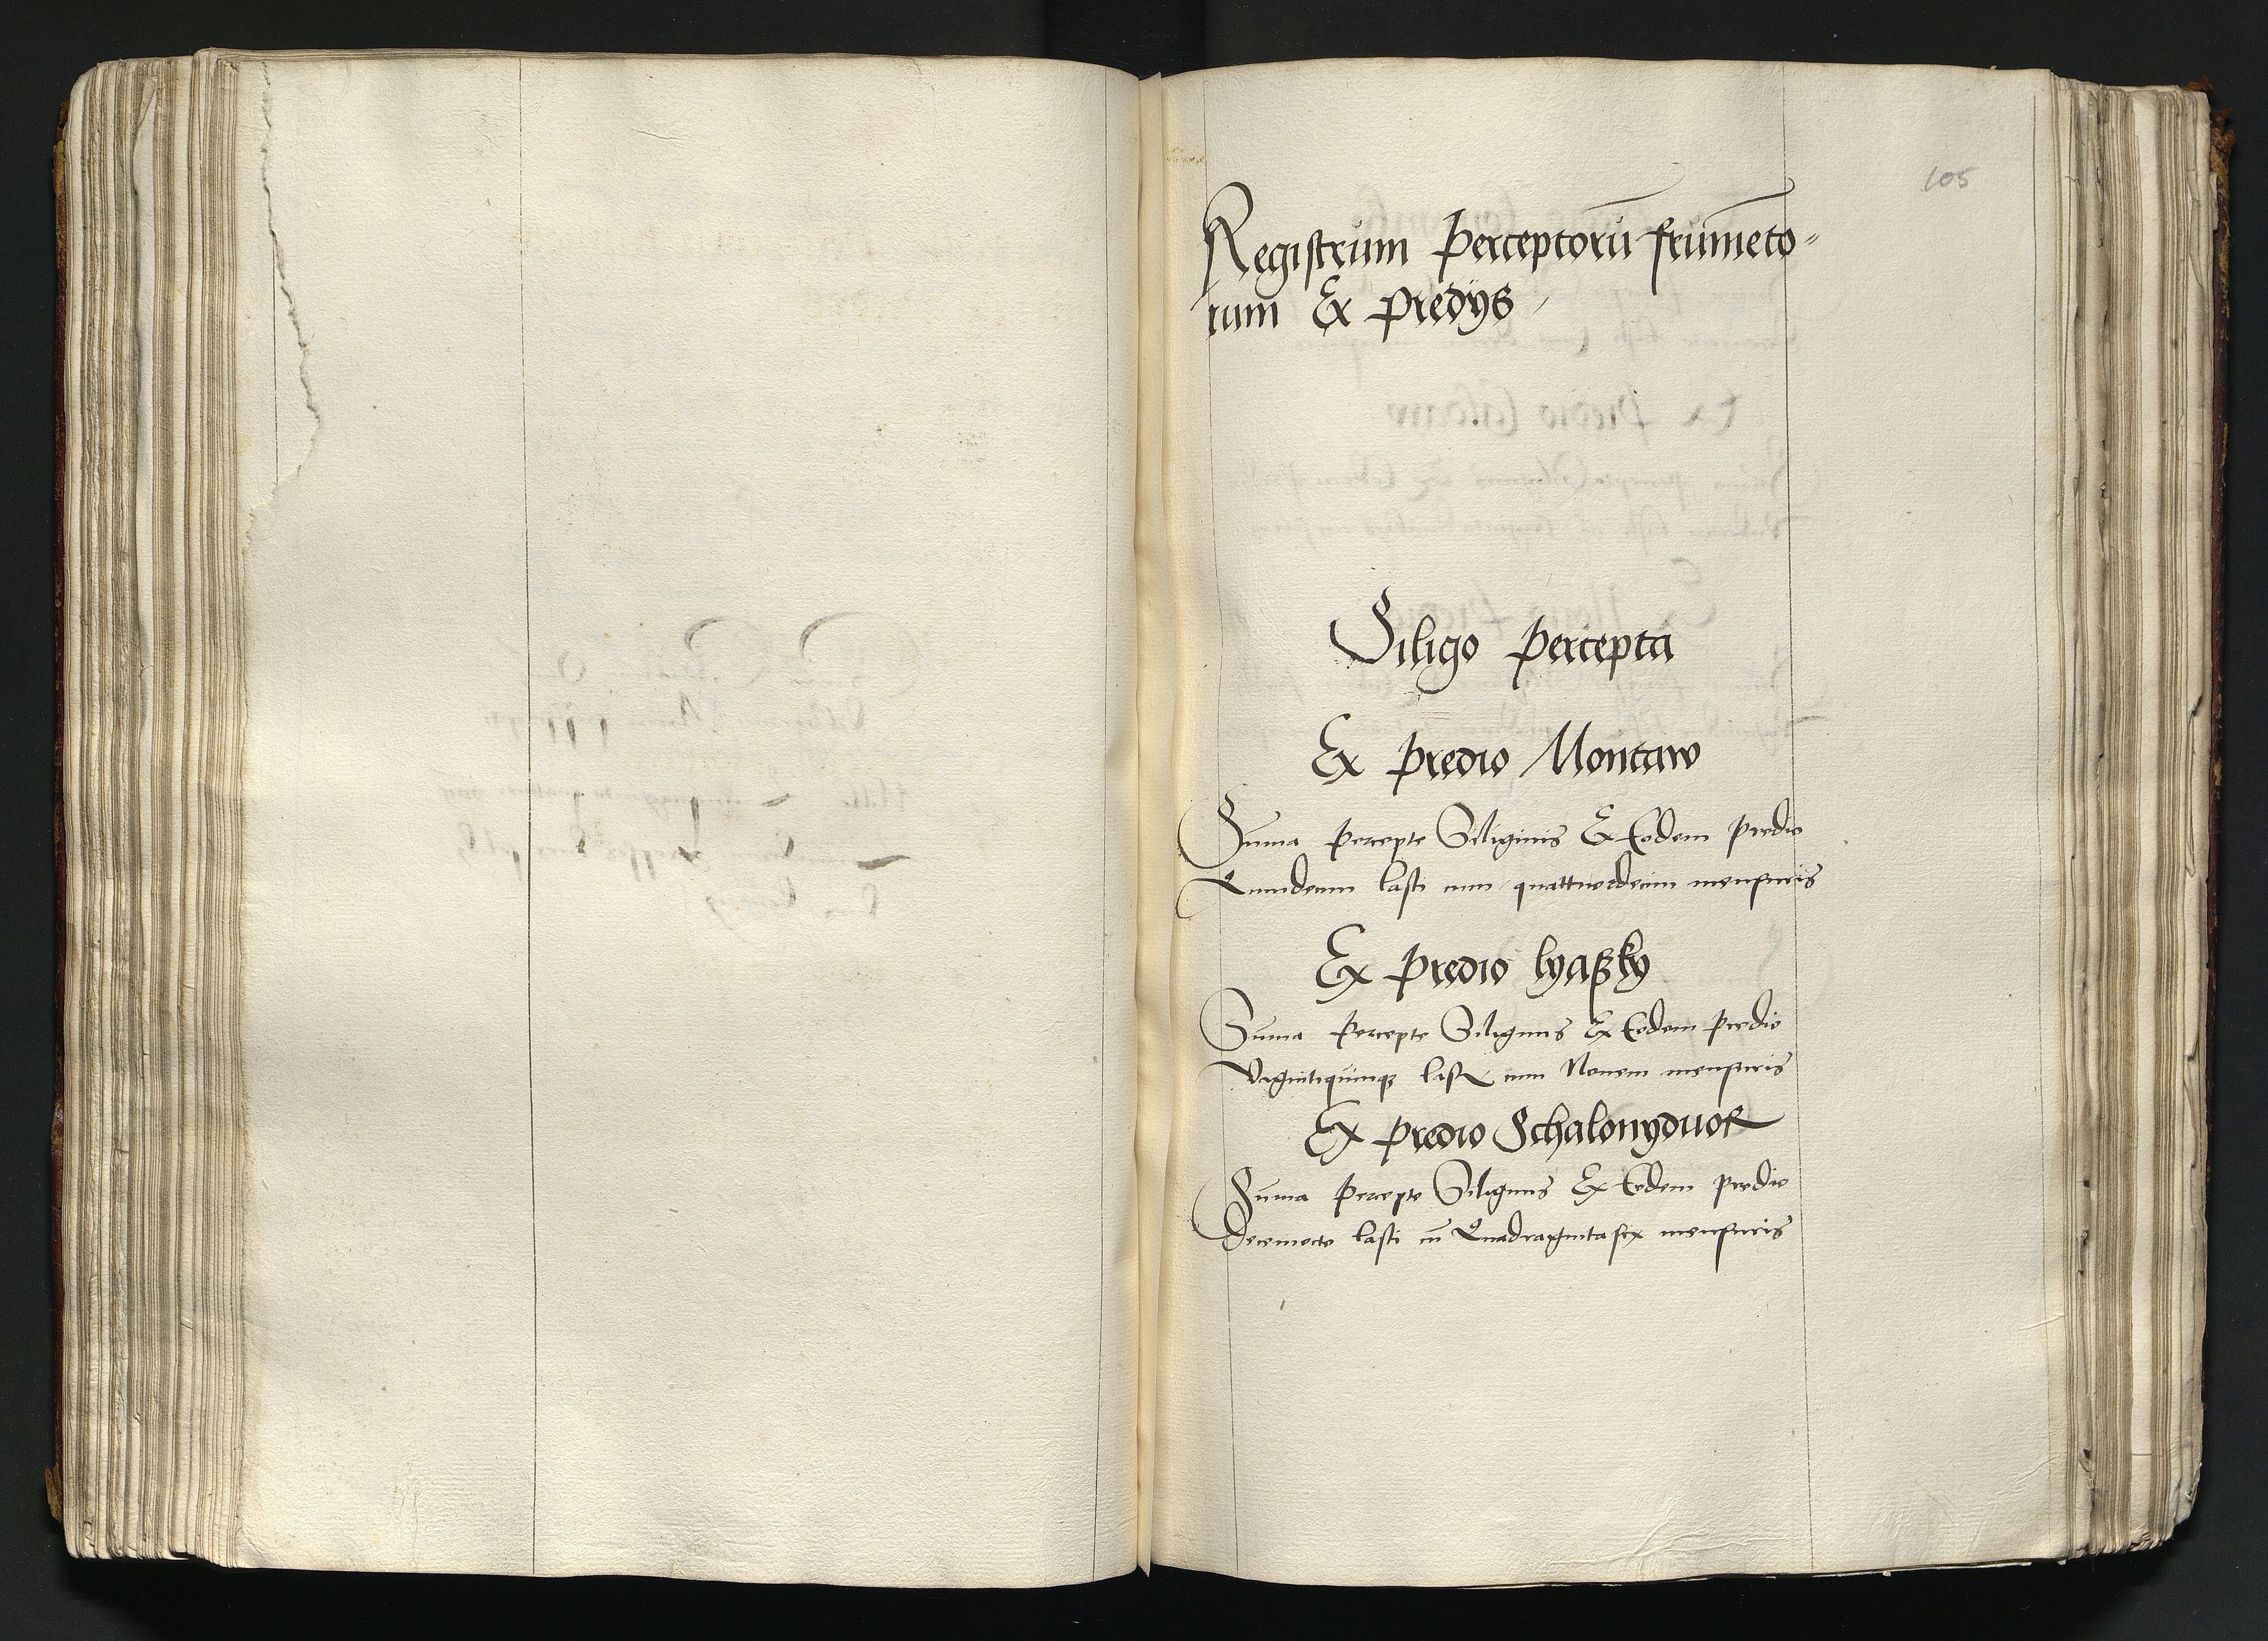 105
Registrum Perceptorū frumēto=
rum Ex predÿs
Siligo Percepta
Ex Predio Montaw
Sūma Percepte Siliginis Ex Eodem Predio
Quindecim lasti cum quattuordecim mensuris
Ex Predio lyaßky
Sūma Percepte Siliginis Ex Eodem Predio
Vigintiquinqꝫ last cum Nouem mensuris
Ex Predio Schalonyduor
Sūma Percepte Siliginis Ex Eodem Predio
Decemocto lasti cū Quadragintasex mensuris